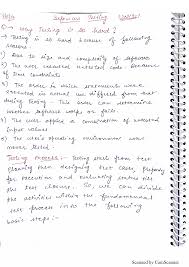 Software Testing
Q→ Why Testing is so hard?
→ Testing is so hard because of following
reasons
① Due to size and complexity of software
② The user executed untested code because
of time constraints
③ The order in which statement were
executed in actual use different from that
during testing. This order can determine
whether software works or fails
④ The user applied a combination of untested
input values
⑤ The user's operating environment was
never tested.
Testing Process:- Testing start from test
planning then designing test cases, preparing
for execution and evaluating status till
the test closure. So, we can divide
the activities within the fundamental
test process into the following
basic steps:-
Scanned by CamScanner